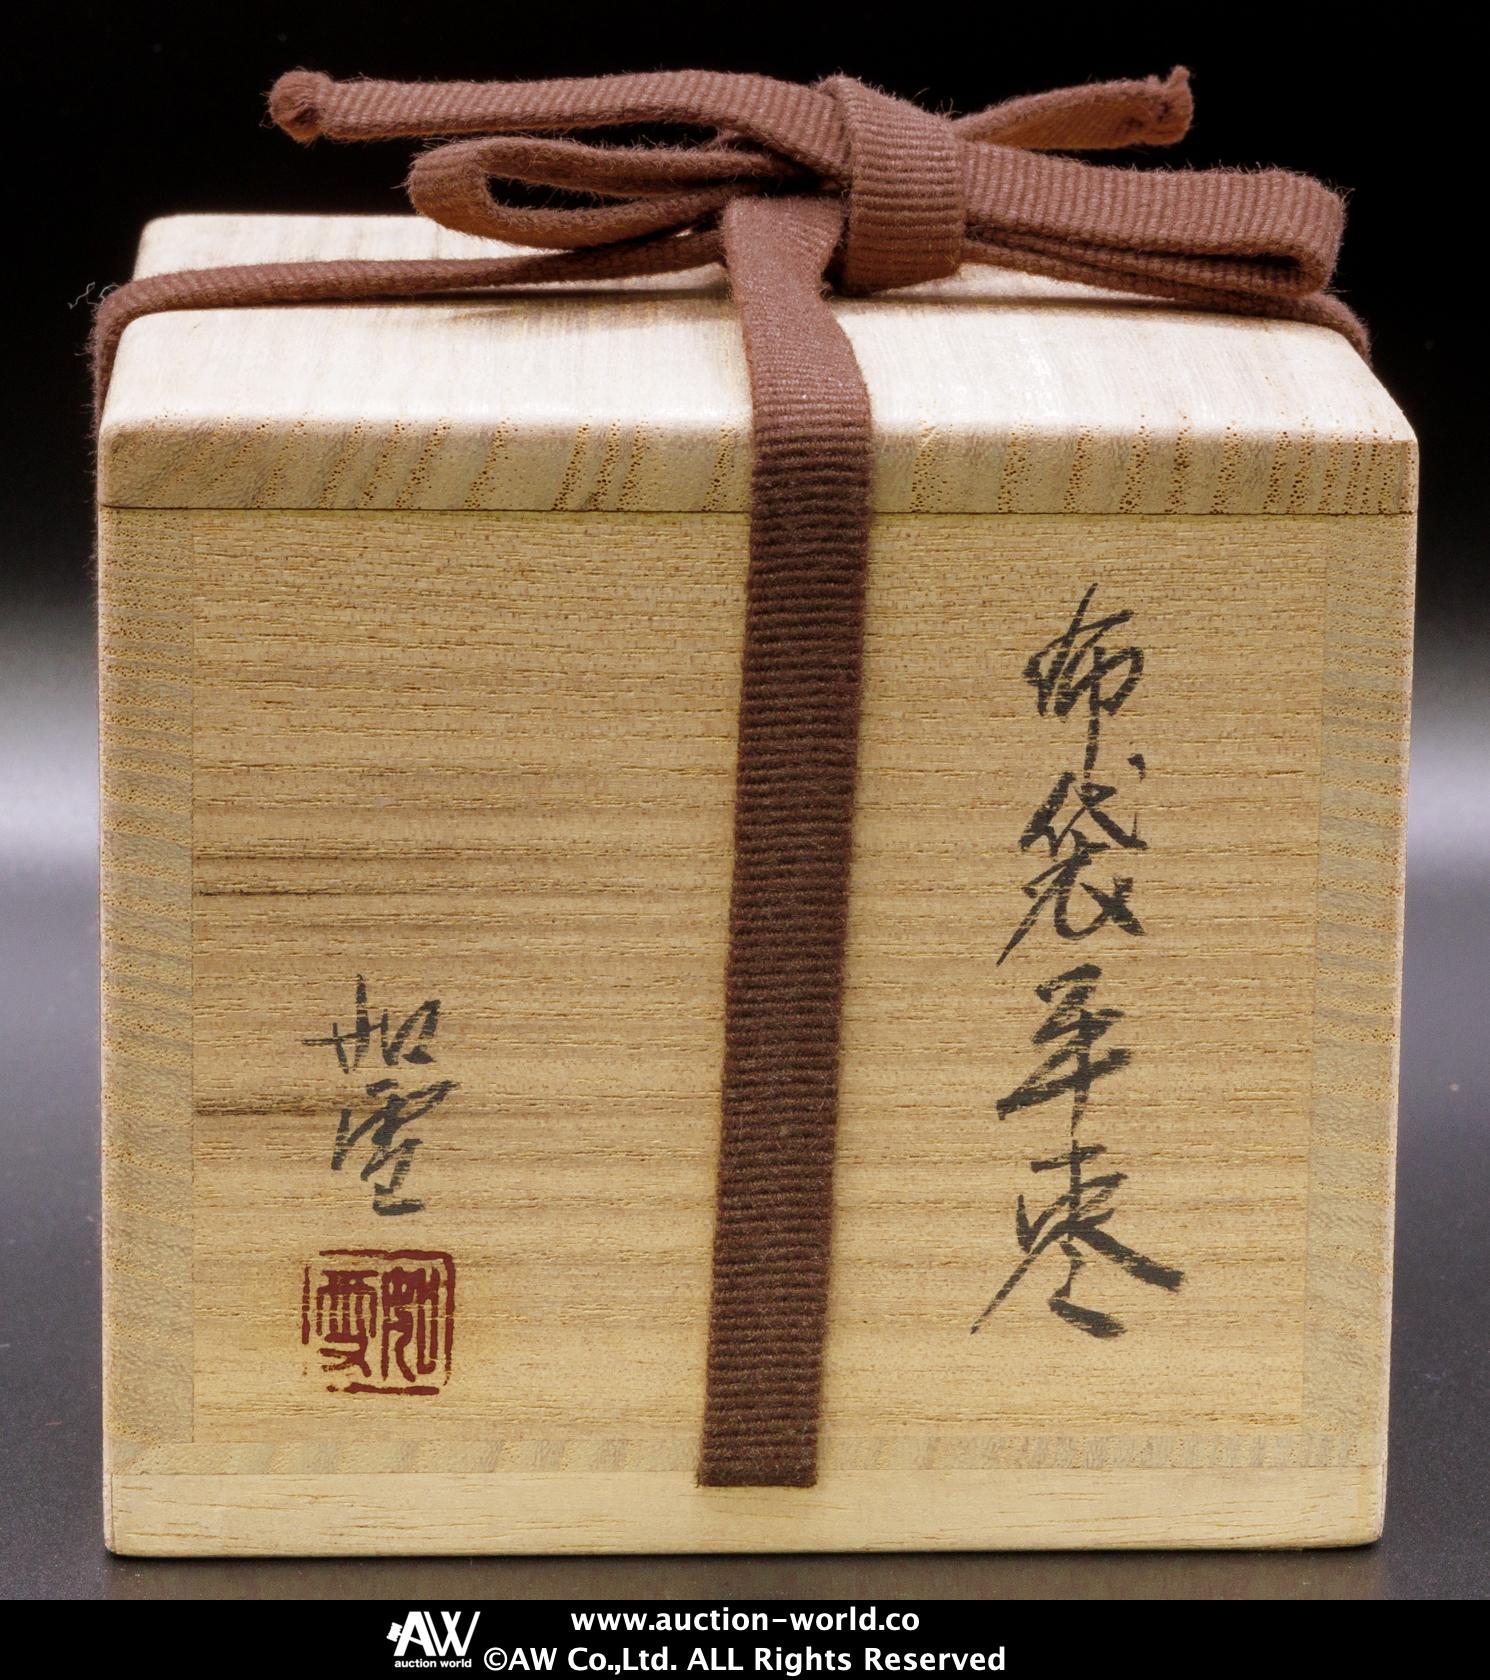 布袋平棗
如雪
AW
auction world
www.auction-world.co
©AW Co.,Ltd. ALL Rights Reserved